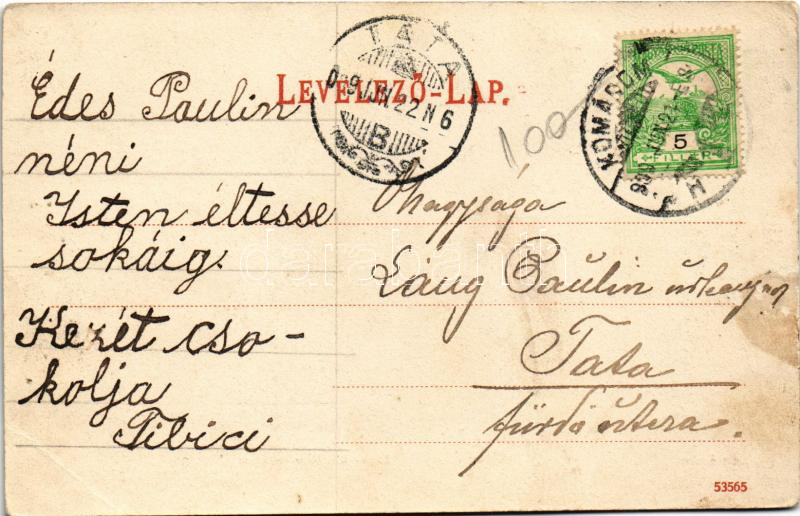 LEVELEZŐ-LAP.
TATA
909 JUN 22 N 6
B
KOMÁROM
5
FILLÉR
100
Édes Paulin
néni
Isten éltesse
sokáig.
Kezét cso-
kolja
Tibici
Nagysága
Láng Paulin
Tata
fürdő utcza.
darabanth
53565